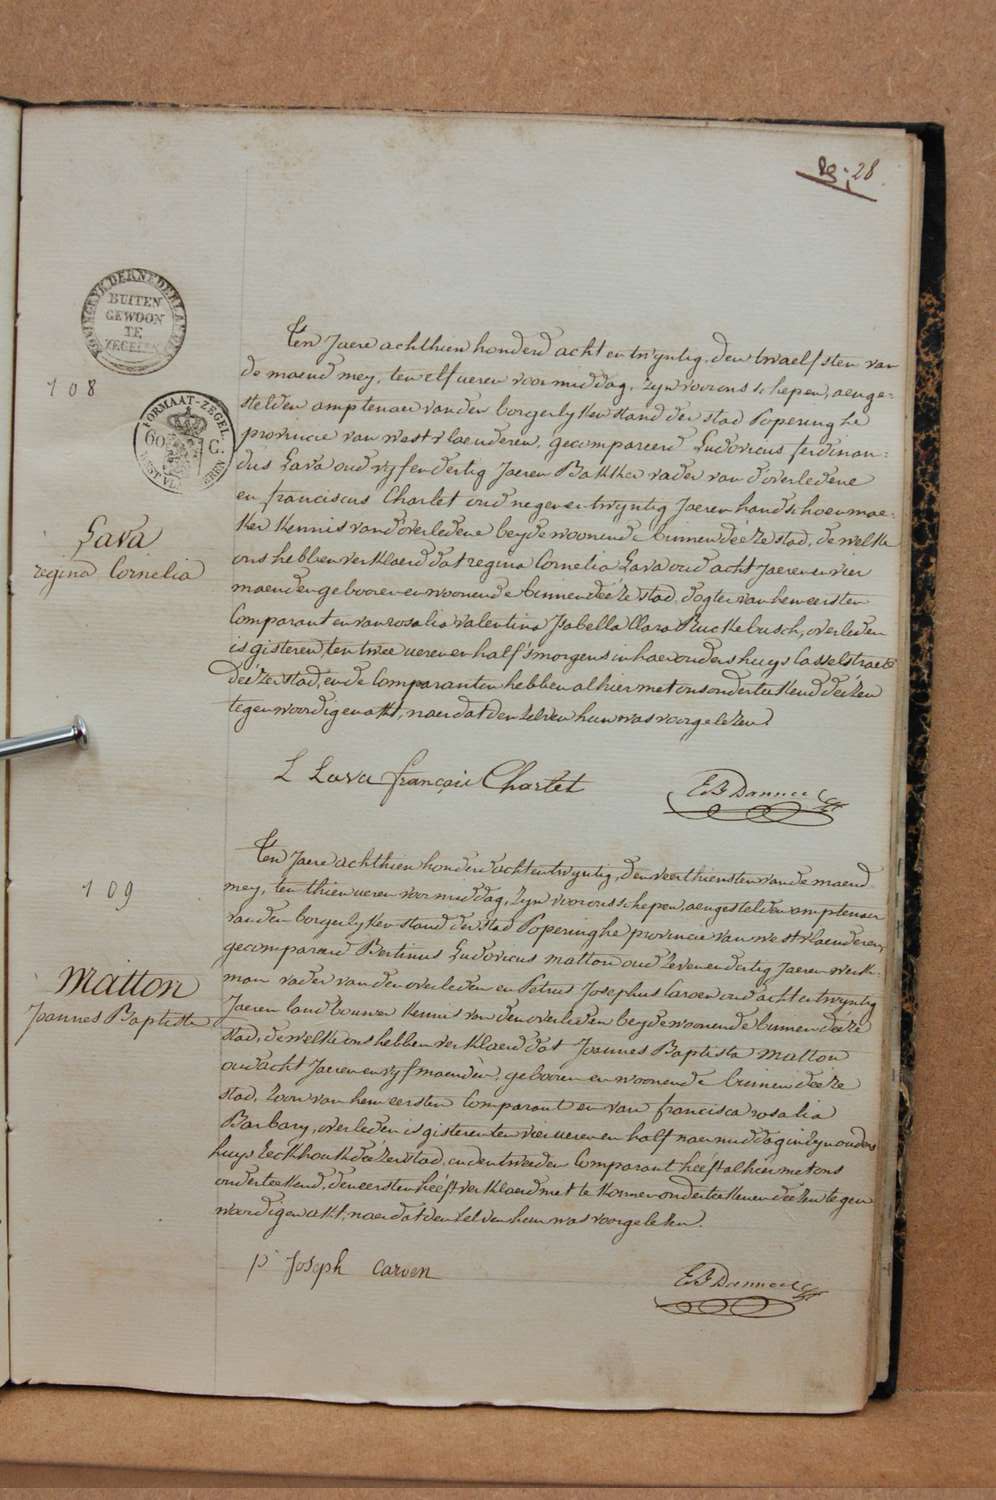 28.
KONINGRYK DER NEDERLANDEN
BUITEN
GEWOON
TE
ZEGELEN
108
FORMAAT-ZEGEL
60 C.
WEST VLAENDEREN
Lava
regina Cornelia
Ten Jaere achthien honderd acht en twyntig, den twaelfsten van
de maend mey, ten elf ueren voormiddag, zyn voor ons schepen, aenge-
stelden amptenaer van den borgerlyken stand der stad Poperinghe
provincie van westvlaenderen, gecompareerd Ludovicus ferdinan-
dus Lava oud vyf en dertig Jaeren Bakker vader van d'overledene
en franciscus Charlet oud negen en twyntig Jaeren handschoenmae-
ker kennis van d'overledene beyde woonende binnen déeze stad, de welke
ons hebben verklaerd dat regina Cornelia Lava oud acht Jaeren en vier
maenden gebooren en woonende binnen deéze stad, dogter van hem eersten
Comparant en van rosalia valentina Isabella Clara Ruckebusch, overleden
is gisteren, ten twee ueren en half 's morgens in haer ouders huys Casselstraete
déézer stad, en de Comparanten hebben alhier met ons onderteekend déézen
tegenwoordigen akt, naer dat den zelven hun was voorgelezen
L Lava françois Charlet EB Dannee
109
Matton
Joannes Baptista
Ten Jaere achthien honderd acht en twyntig, den veerthiensten van de maend
mey, ten thien ueren voormiddag, zyn voor ons schepen, aengestelden amptenaer
van den borgerlyken stand der stad Poperinghe provincie van westvlaenderen,
gecompareerd Bertinus Ludovicus matton oud zeven en dertig Jaeren werk-
man vader van den overleden en Petrus Josephus Caroen oud acht en twyntig
Jaeren landbouwer kennis van den overleden beyde woonende binnen déeze
stad, de welke ons hebben verklaerd dat Joannes Baptista Matton
oud acht Jaeren en vyf maenden, gebooren en woonende binnen deéze
stad, zoon van hem eersten Comparant en van francisca rosalia
Barbary, overleden is gisteren ten vier ueren en half naermiddag in zyn ouders
huys Eeckhoukdéézer stad, en den tweeden Comparant heéft alhier met ons
onderteekend, den eersten heéft verklaerd niet te konnen onderteekenen deézen tegen
woordigen akt, naer dat den zelven hun was voorgelezen.
p Joseph Caroen EB Dannee